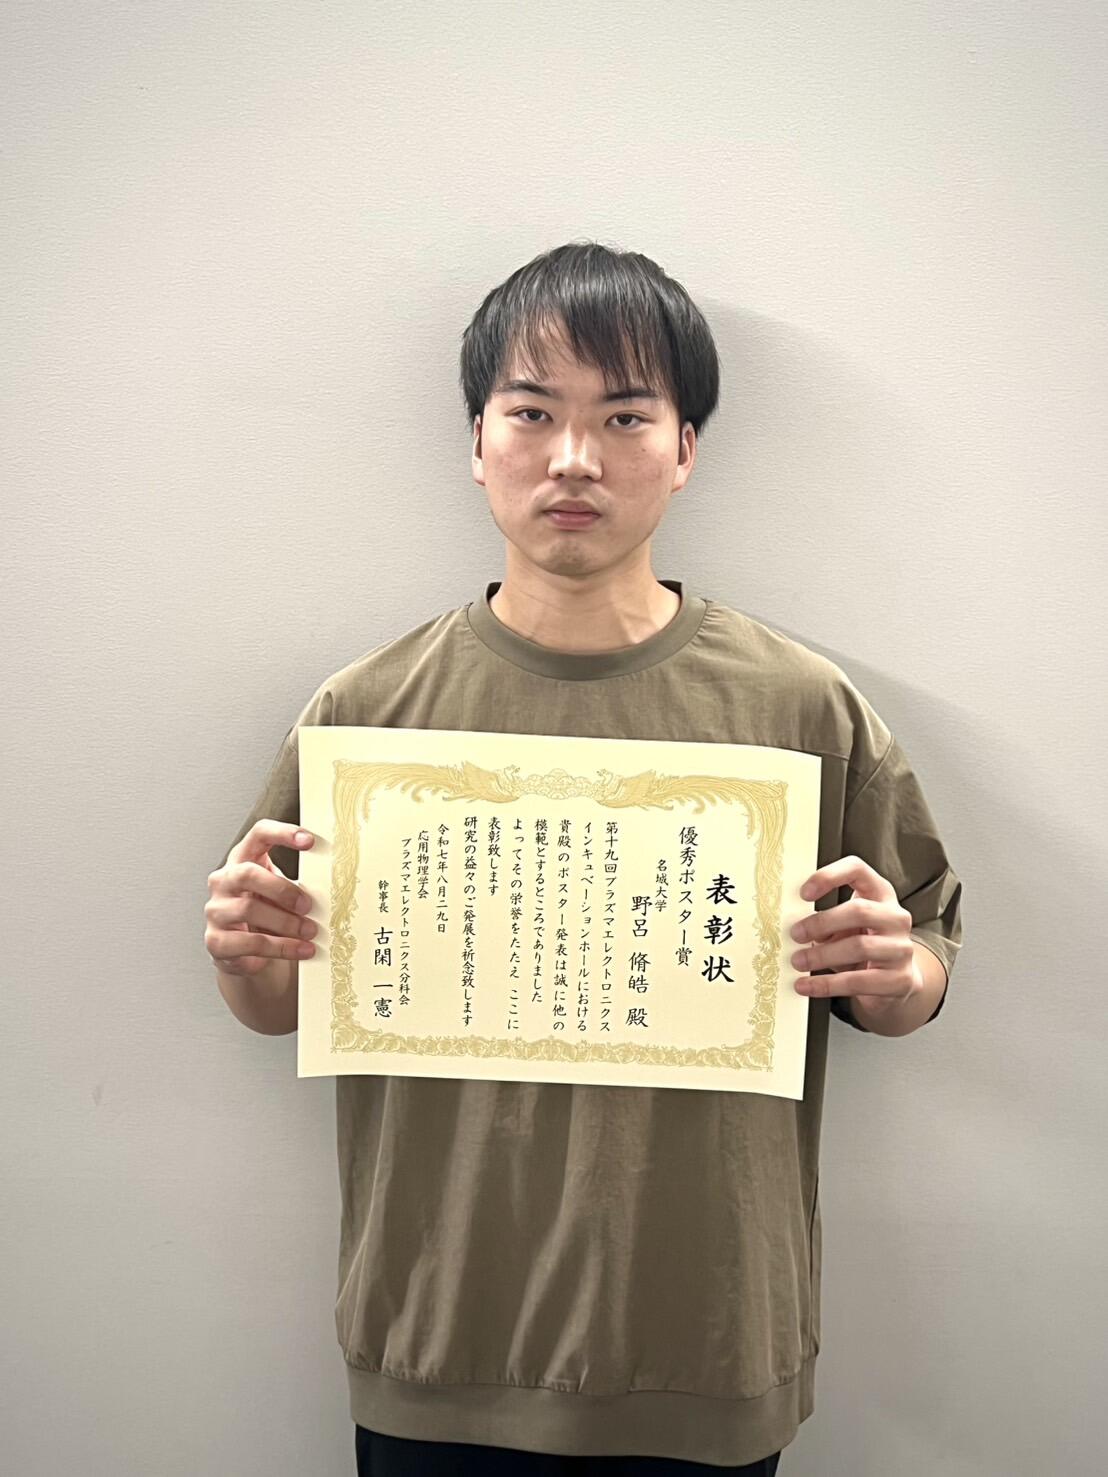 表彰状
優秀ポスター賞
名城大学
野呂 脩皓 殿
第十九回プラズマエレクトロニクス
インキュベーションホールにおける
貴殿のポスター発表は誠に他の
模範とするところでありました
よってその栄誉をたたえ ここに
表彰致します
研究の益々のご発展を祈念致します
令和七年八月二九日
応用物理学会
プラズマエレクトロニクス分科会
幹事長 古閑 一憲